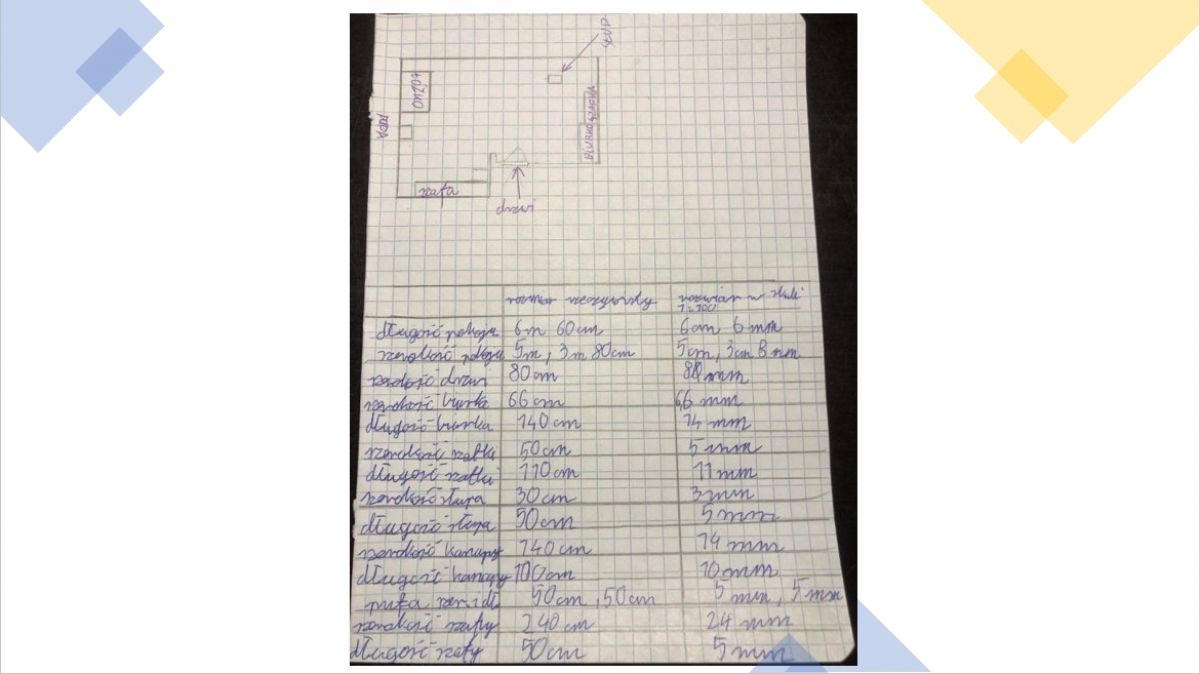 SŁUP
ŁÓŻKO
PUFA
BIURKO SZAFKA
szafa
drzwi
rozmiar rzeczywisty
rozmiar w skali
1:100
długość pokoju 6m 60cm 6cm 6mm
szerokość pokoju 5m, 3m 80cm 5cm, 3cm 8mm
szerokość drzwi 80cm mm
szerokość biurka 66cm 6,6 mm
długość biurka 140cm 14 mm
szerokość szafki 50cm 5mm
długość szafki 110cm 11mm
szerokość słupa 30cm 3mm
długość słupa 50cm 5mm
szerokość kanapy 140cm 14mm
długość kanapy 100cm 10mm
pufa szer. i dł. 50cm, 50cm 5mm, 5mm
szerokość szafy 240cm 24mm
długość szafy 50cm 5mm